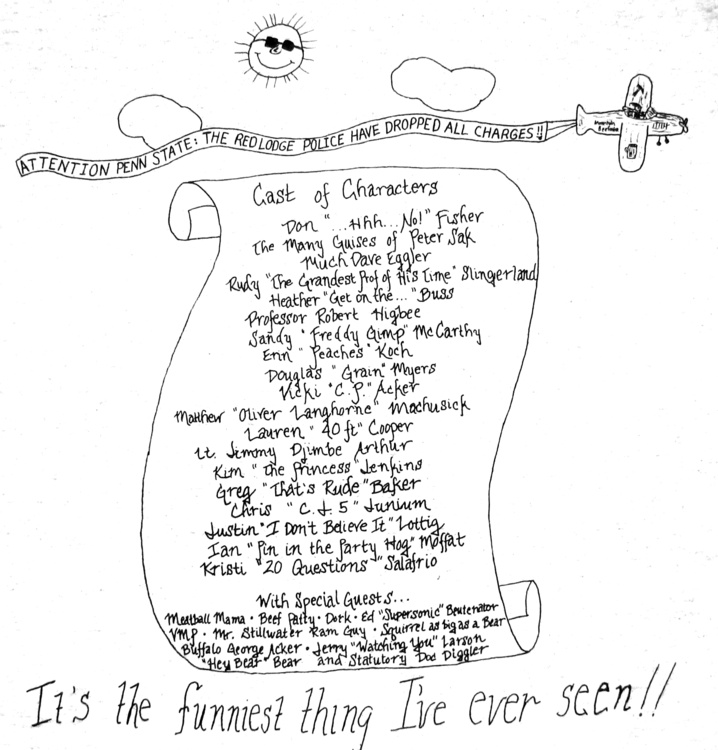 ATTENTION PENN STATE: THE RED LODGE POLICE HAVE DROPPED ALL CHARGES!!
Cast of Characters
Don "...Hhh...No!" Fisher
The Many Guises of Peter Sak
Much Dave Eggler
Rudy "The Grandest Prof of His Time" Slingerland
Heather "Get on the..." Buss
Professor Robert Higbee
Sandy "Freddy Gimp" McCarthy
Erin "Peaches" Koch
Douglas "Grain" Myers
Vicki "C.P." Acker
Matthew "Oliver Langhorne" Machusick
Lauren "40 ft" Cooper
Lt. Jimmy Djimbe Arthur
Kim "The Princess" Jenkins
Greg "That's Rude" Baker
Chris "C.J. 5" Junium
Justin "I Don't Believe It" Lottig
Ian "Pin in the Party Hog" Moffat
Kristi "20 Questions" Salafrio
With Special Guests...
Meatball Mama · Beef Patty · Dork · Ed "Supersonic" Beutenator
VMP · Mr. Stillwater Ram Guy · Squirrel as big as a Bear
Buffalo George Acker · Jerry "Watching You" Larson
"Hey Bear" Bear and Statutory Doc Diggler
It's the funniest thing I've ever seen!!